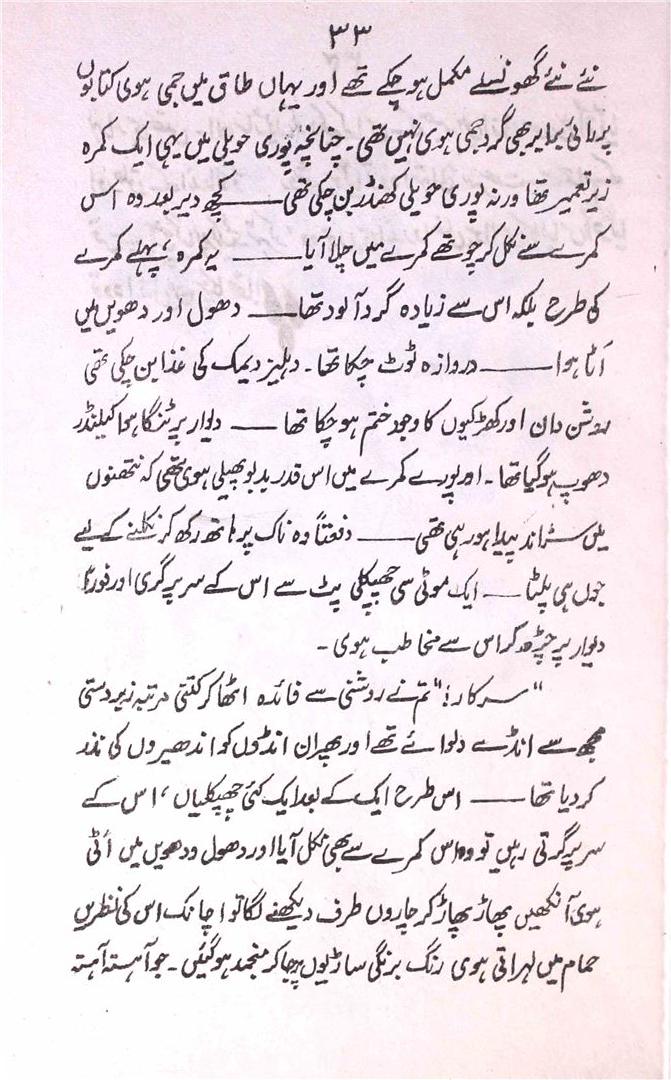 ۳۳
نئے نئے گھونسلے مکمل ہو چکے تھے اور یہاں طاق میں جمی ہوی کتابوں
پر رائی برابر بھی گرد جمی ہوی نہیں تھی۔ چنانچہ پوری حویلی میں یہی ایک کمرہ
زیر تعمیر تھا ورنہ پوری حویلی کھنڈر بن چکی تھی ــــــ کچھ دیر بعد وہ اس
کمرے سے نکل کر چوتھے کمرے میں چلا آیا ــــــ یہ کمرہ، پہلے کمرے
کی طرح بلکہ اس سے زیادہ گرد آلود تھا ــــــ دھول اور دھویں میں
اَٹا ہوا ــــــ دروازہ ٹوٹ چکا تھا۔ دہلیز دیمک کی غذا بن چکی تھی
روشن دان اور کھڑکیوں کا وجود ختم ہو چکا تھا ــــــ دیوار پر ٹنگا ہوا کیلنڈر
دھوپ ہو گیا تھا۔ اور پورے کمرے میں اس قدر بدبو پھیلی ہوی تھی کہ نتھنوں
میں سڑاند پیدا ہو رہی تھی ــــــ دفعتاً وہ ناک پر ہاتھ رکھ کر نکلنے کے لیے
جوں ہی پلٹا ــــــ ایک موٹی سی چھپکلی پٹ سے اس کے سر پر گری اور فوراً
دیوار پر چڑھ کر اس سے مخاطب ہوی۔
"سرکار!" تم نے روشنی سے فائدہ اٹھا کر کتنی مرتبہ زبردستی
مجھ سے انڈے دلوائے تھے اور پھر ان انڈوں کو اندھیروں کی نذر
کر دیا تھا ــــــ اس طرح ایک کے بعد ایک کئی چھپکلیاں، اس کے
سر پر گرتی رہیں تو وہ اس کمرے سے بھی نکل آیا اور دھول و دھویں میں اَٹی
ہوی آنکھیں پھاڑ پھاڑ کر چاروں طرف دیکھنے لگا تو اچانک اس کی نظریں
حمام میں لہراتی ہوی رنگ برنگی ساڑیوں پر جا کر منجمد ہو گئیں۔ جو آہستہ آہستہ